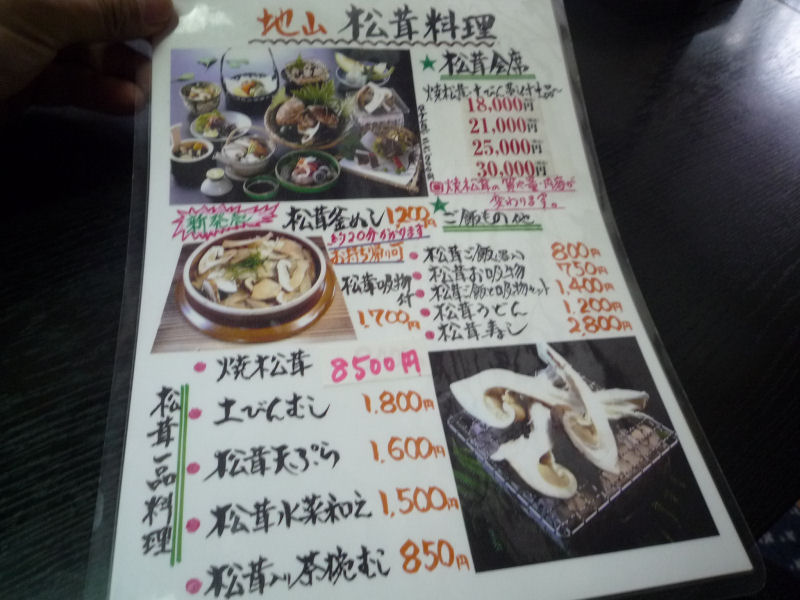 地山 松茸料理
★松茸会席
焼松茸・土びん蒸し付
18,000円
21,000円
25,000円
30,000円
焼松茸の質や量・内容が
変わります。
新発売
松茸釜めし 1200円
約20分かかります
お持ち帰り可
松茸吸物付
1,700円
★ご飯もの他
・松茸ご飯 800円
・松茸お吸物 750円
・松茸ご飯と吸物セット 1,400円
・松茸うどん 1,200円
・松茸寿し 2,800円
松茸一品料理
・焼松茸 8500円
・土びんむし 1,800円
・松茸天ぷら 1,600円
・松茸水菜和え 1,500円
・松茸入り茶碗むし 850円